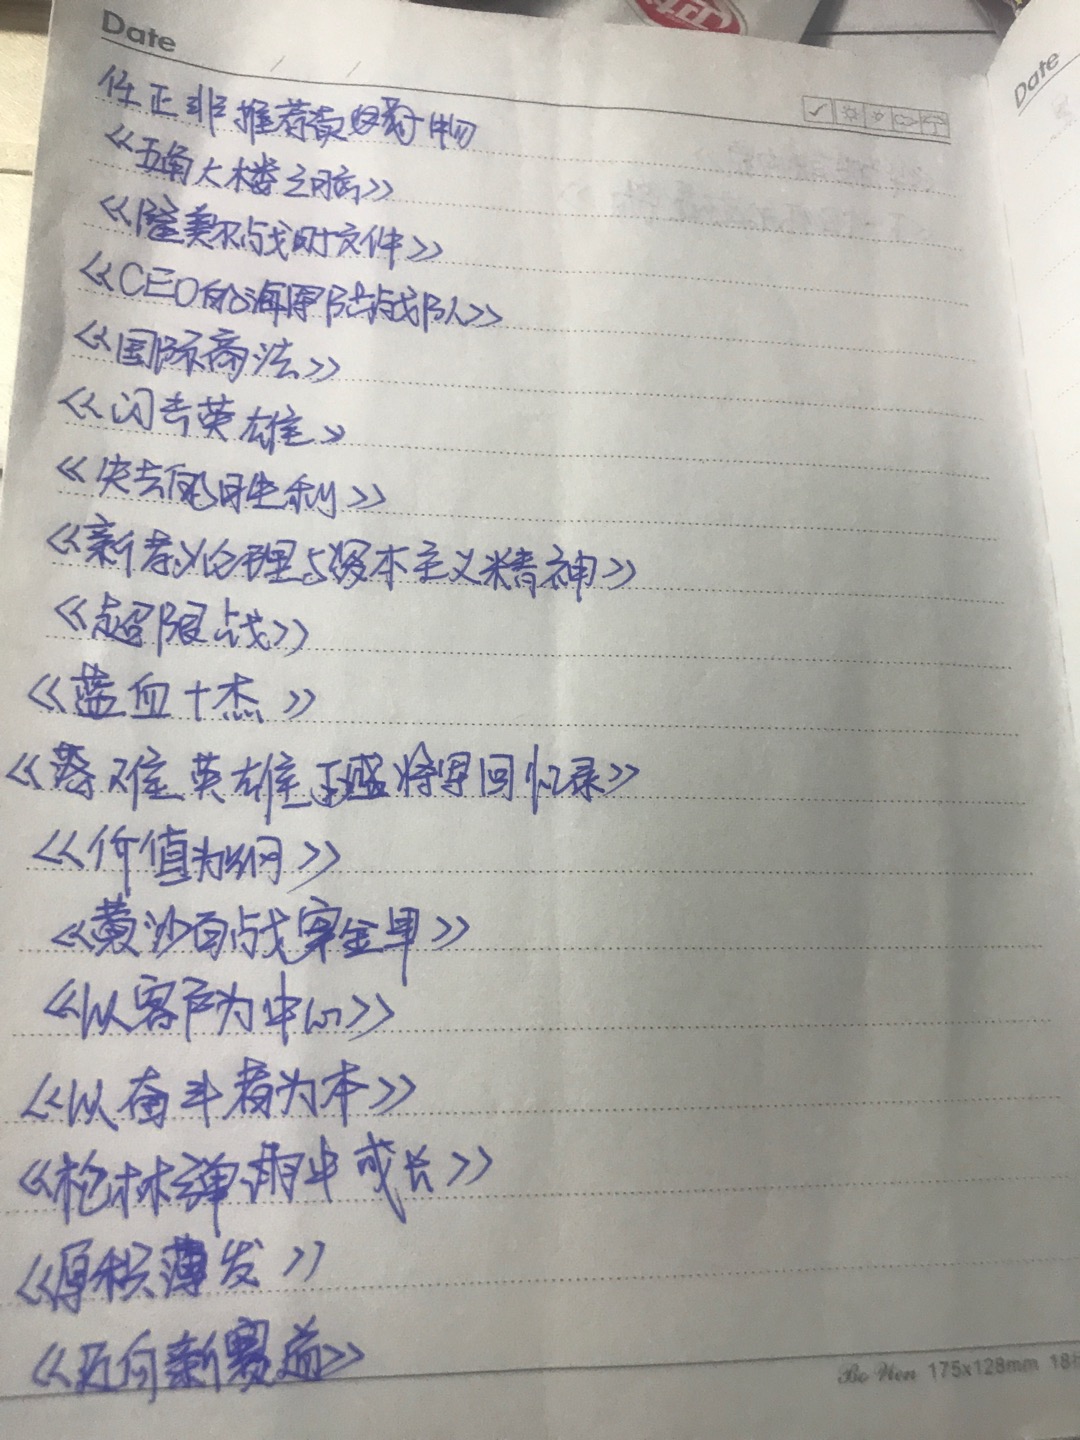 Date
Date
任正非推荐读物
《五角大楼之脑》
《隆美尔战时文件》
《CEO的海军陆战队》
《国际商法》
《闪击英雄》
《失去的胜利》
《新教伦理与资本主义精神》
《超限战》
《蓝血十杰》
《落难英雄丁盛将军回忆录》
《价值为纲》
《黄沙百战穿金甲》
《以客户为中心》
《以奋斗者为本》
《枪林弹雨中成长》
《厚积薄发》
《迈向新赛道》
Bo Wen 175x128mm 18